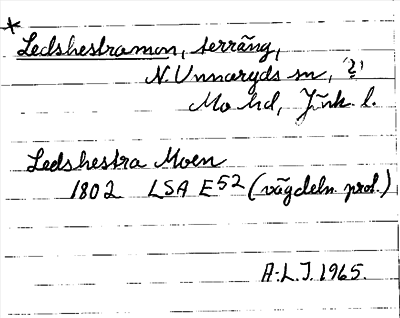 *
Ledshestramon, terräng,
N. Unnaryds sn, '2'
Mo hd, Jönk. l.
Ledshestra Moen
1802 LSA E52 (vägdeln. prot.)
A.L.J. 1965.